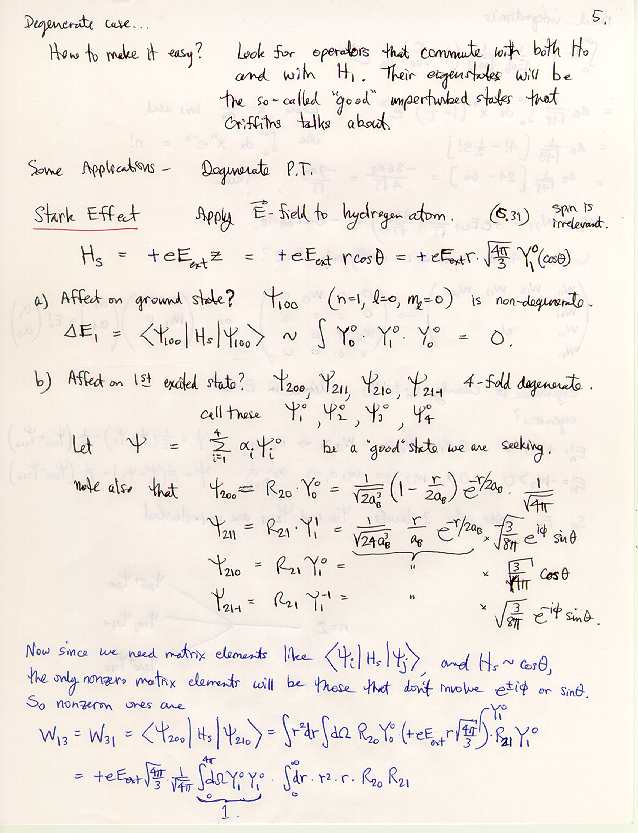 Degenerate case... 5.
How to make it easy? Look for operators that commute with both H₀
and with H₁. Their eigenstates will be
the so-called "good" unperturbed states that
Griffiths talks about.
Some Applications - Degenerate P.T.
Stark Effect Apply E⃗-field to hydrogen atom. (6.31) spin is irrelevant.
H_S = +eE_ext z = +eE_ext r cosθ = +eE_ext r √(4π/3) Y₁⁰(cosθ)
a) Affect on ground state? Ψ₁₀₀ (n=1, l=0, m_l=0) is non-degenerate.
ΔE₁ = ⟨Ψ₁₀₀|H_S|Ψ₁₀₀⟩ ~ ∫ Y₀⁰ · Y₁⁰ · Y₀⁰ = 0.
b) Affect on 1st excited state? Ψ₂₀₀, Ψ₂₁₁, Ψ₂₁₀, Ψ₂₁₋₁ 4-fold degenerate.
call these Ψ₁⁰, Ψ₂⁰, Ψ₃⁰, Ψ₄⁰
Let Ψ = Σ_{i=1}^{4} α_i Ψ_i⁰ be a "good" state we are seeking.
note also that Ψ₂₀₀ = R₂₀ · Y₀⁰ = 1/√(2a_B³) (1 - r/2a_B) e^{-r/2a_B} · 1/√(4π)
Ψ₂₁₁ = R₂₁ · Y₁¹ = 1/√(24a_B³) r/a_B e^{-r/2a_B} × √(3/8π) e^{iφ} sinθ
Ψ₂₁₀ = R₂₁ Y₁⁰ = " × √(3/4π) cosθ
Ψ₂₁₋₁ = R₂₁ Y₁⁻¹ = " × √(3/8π) e^{-iφ} sinθ.
Now since we need matrix elements like ⟨Ψ_i|H_S|Ψ_j⟩, and H_S ~ cosθ,
the only nonzero matrix elements will be those that don't involve e^{±iφ} or sinθ.
So nonzeron ones are
W₁₃ = W₃₁ = ⟨Ψ₂₀₀|H_S|Ψ₂₁₀⟩ = ∫r²dr ∫dΩ R₂₀ Y₀⁰ (+eE_ext r √(4π/3) Y₁⁰) · R₂₁ Y₁⁰
= +eE_ext √(4π/3) 1/√(4π) ∫₀^{4π} dΩ Y₁⁰ Y₁⁰ · ∫₀^∞ dr · r² · r · R₂₀ R₂₁
1.